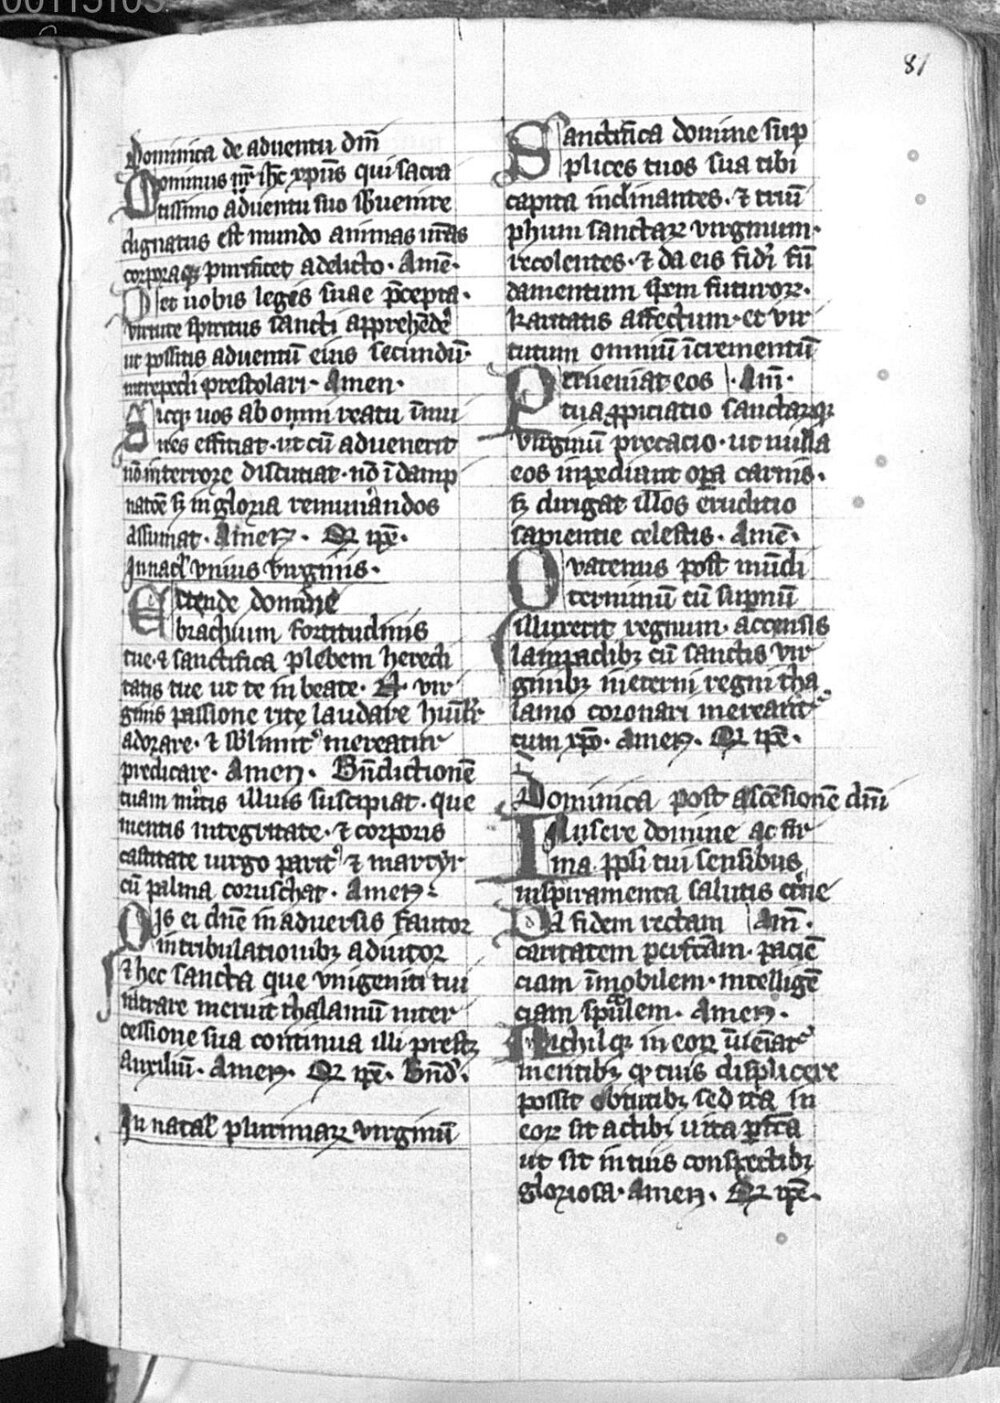 00115103
81
Dominica de adventu dn̄i
Dominus nr̄ ih̄c xp̄us qui sacra
tissimo adventu suo sb̄uenire
dignatus est mundo animas vr̄as
corporaq; purificet a delicto. Amē.
Det uobis leges sue p̄cepta.
virtute spiritus sancti apprehēdē
ut possitis adventū eius secundū.
intrepedi prestolari. Amen.
Sicq; uos ab omni reatu ī̄mu
nes efficiat. ut cū aduenerit
nō in terrore discutiat. nō ī damp
natōe s; in gloria remun̄andos
assumat. Amen. Qr̄ ip̄e.
In natal̄ vnius virginis.
Extende domine
brachium fortitudinis
tue. & sanctifica plebem heredi
tatis tue ut te in beate. N. vir
ginis passione rite laudare hūilr̄
adorare. & sb̄limit' mereatur
predicare. Amen. Bn̄dictionē
tuam intis illius suscipiat. que
mentis integritate. & corporis
castitate uirgo parit' & martyr
cū palma coruschat. Amen.
Sis ei dn̄e in aduersis fautor
in tribulationib; adiutor
& hec sancta que vnigeniti tui
intrare meruit thalamū inter
cessione sua continua illi prestet
auxiliū. Amen. Qr̄ ip̄e. Bn̄d.
In natal̄ plurimarum virginū
Sanctifica domine sup
plices tuos sua tibi
capita inclinantes. & triū
phum sanctarum virginum.
recolentes. & da eis fidei fū
damentum spem futurorum.
karitatis affectum. et vir
tutum omniū īcrementū
Perueniat eos Am̄.
tua p̄piciatio sanctarumq;
virginū precacio. ut nulla
eos inpediant opera carnis.
s; dirigat illos eruditio
sapientie celestis. Amē.
Quatenus post mūdi
terminū cū sup̄nū
illuxerit regnum. accensis
lampadib; cū sanctis vir
ginib; in eterni regni tha
lamo coronari mereant'
cum xp̄o. Amen. Qr̄ ip̄e.
Dominica post ascēsionē dn̄i
Insere domine ac fir
ma pp̄li tui sensibus
inspiramenta salutis et̄ne
Da fidem rectam Am̄.
caritatem perfectam. paciē
ciam īmobilem. intelligē
ciam spūalem. Amen.
Nichilq; in eorum ūiēiat'
mentib; q̄ tuis displicere
possit obtutib; sed ita in
eorum sit actibus uita p̄fcā
ut sit in tuis conspectib;
gloriosa. Amen. Qr̄ ip̄e.